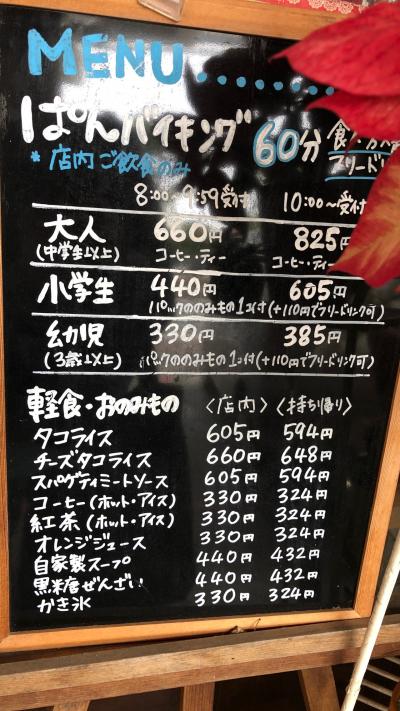 MENU........
ぱんバイキング 60分 食べ放題
フリードリ
*店内ご飲食のみ
8:00~9:59受付 10:00~受付
大人 660円 825円
(中学生以上) コーヒー・ティー コーヒー・ティー
小学生 440円 605円
パックののみもの1コ付(+110円でフリードリンク可)
幼児 330円 385円
(3歳以上) パックののみもの1コ付(+110円でフリードリンク可)
軽食・おのみもの 〈店内〉〈持ち帰り〉
タコライス 605円 594円
チーズタコライス 660円 648円
スパゲティミートソース 605円 594円
コーヒー(ホット・アイス) 330円 324円
紅茶(ホット・アイス) 330円 324円
オレンジジュース 330円 324円
自家製スープ 440円 432円
黒米唐ぜんざい 440円 432円
かき氷 330円 324円